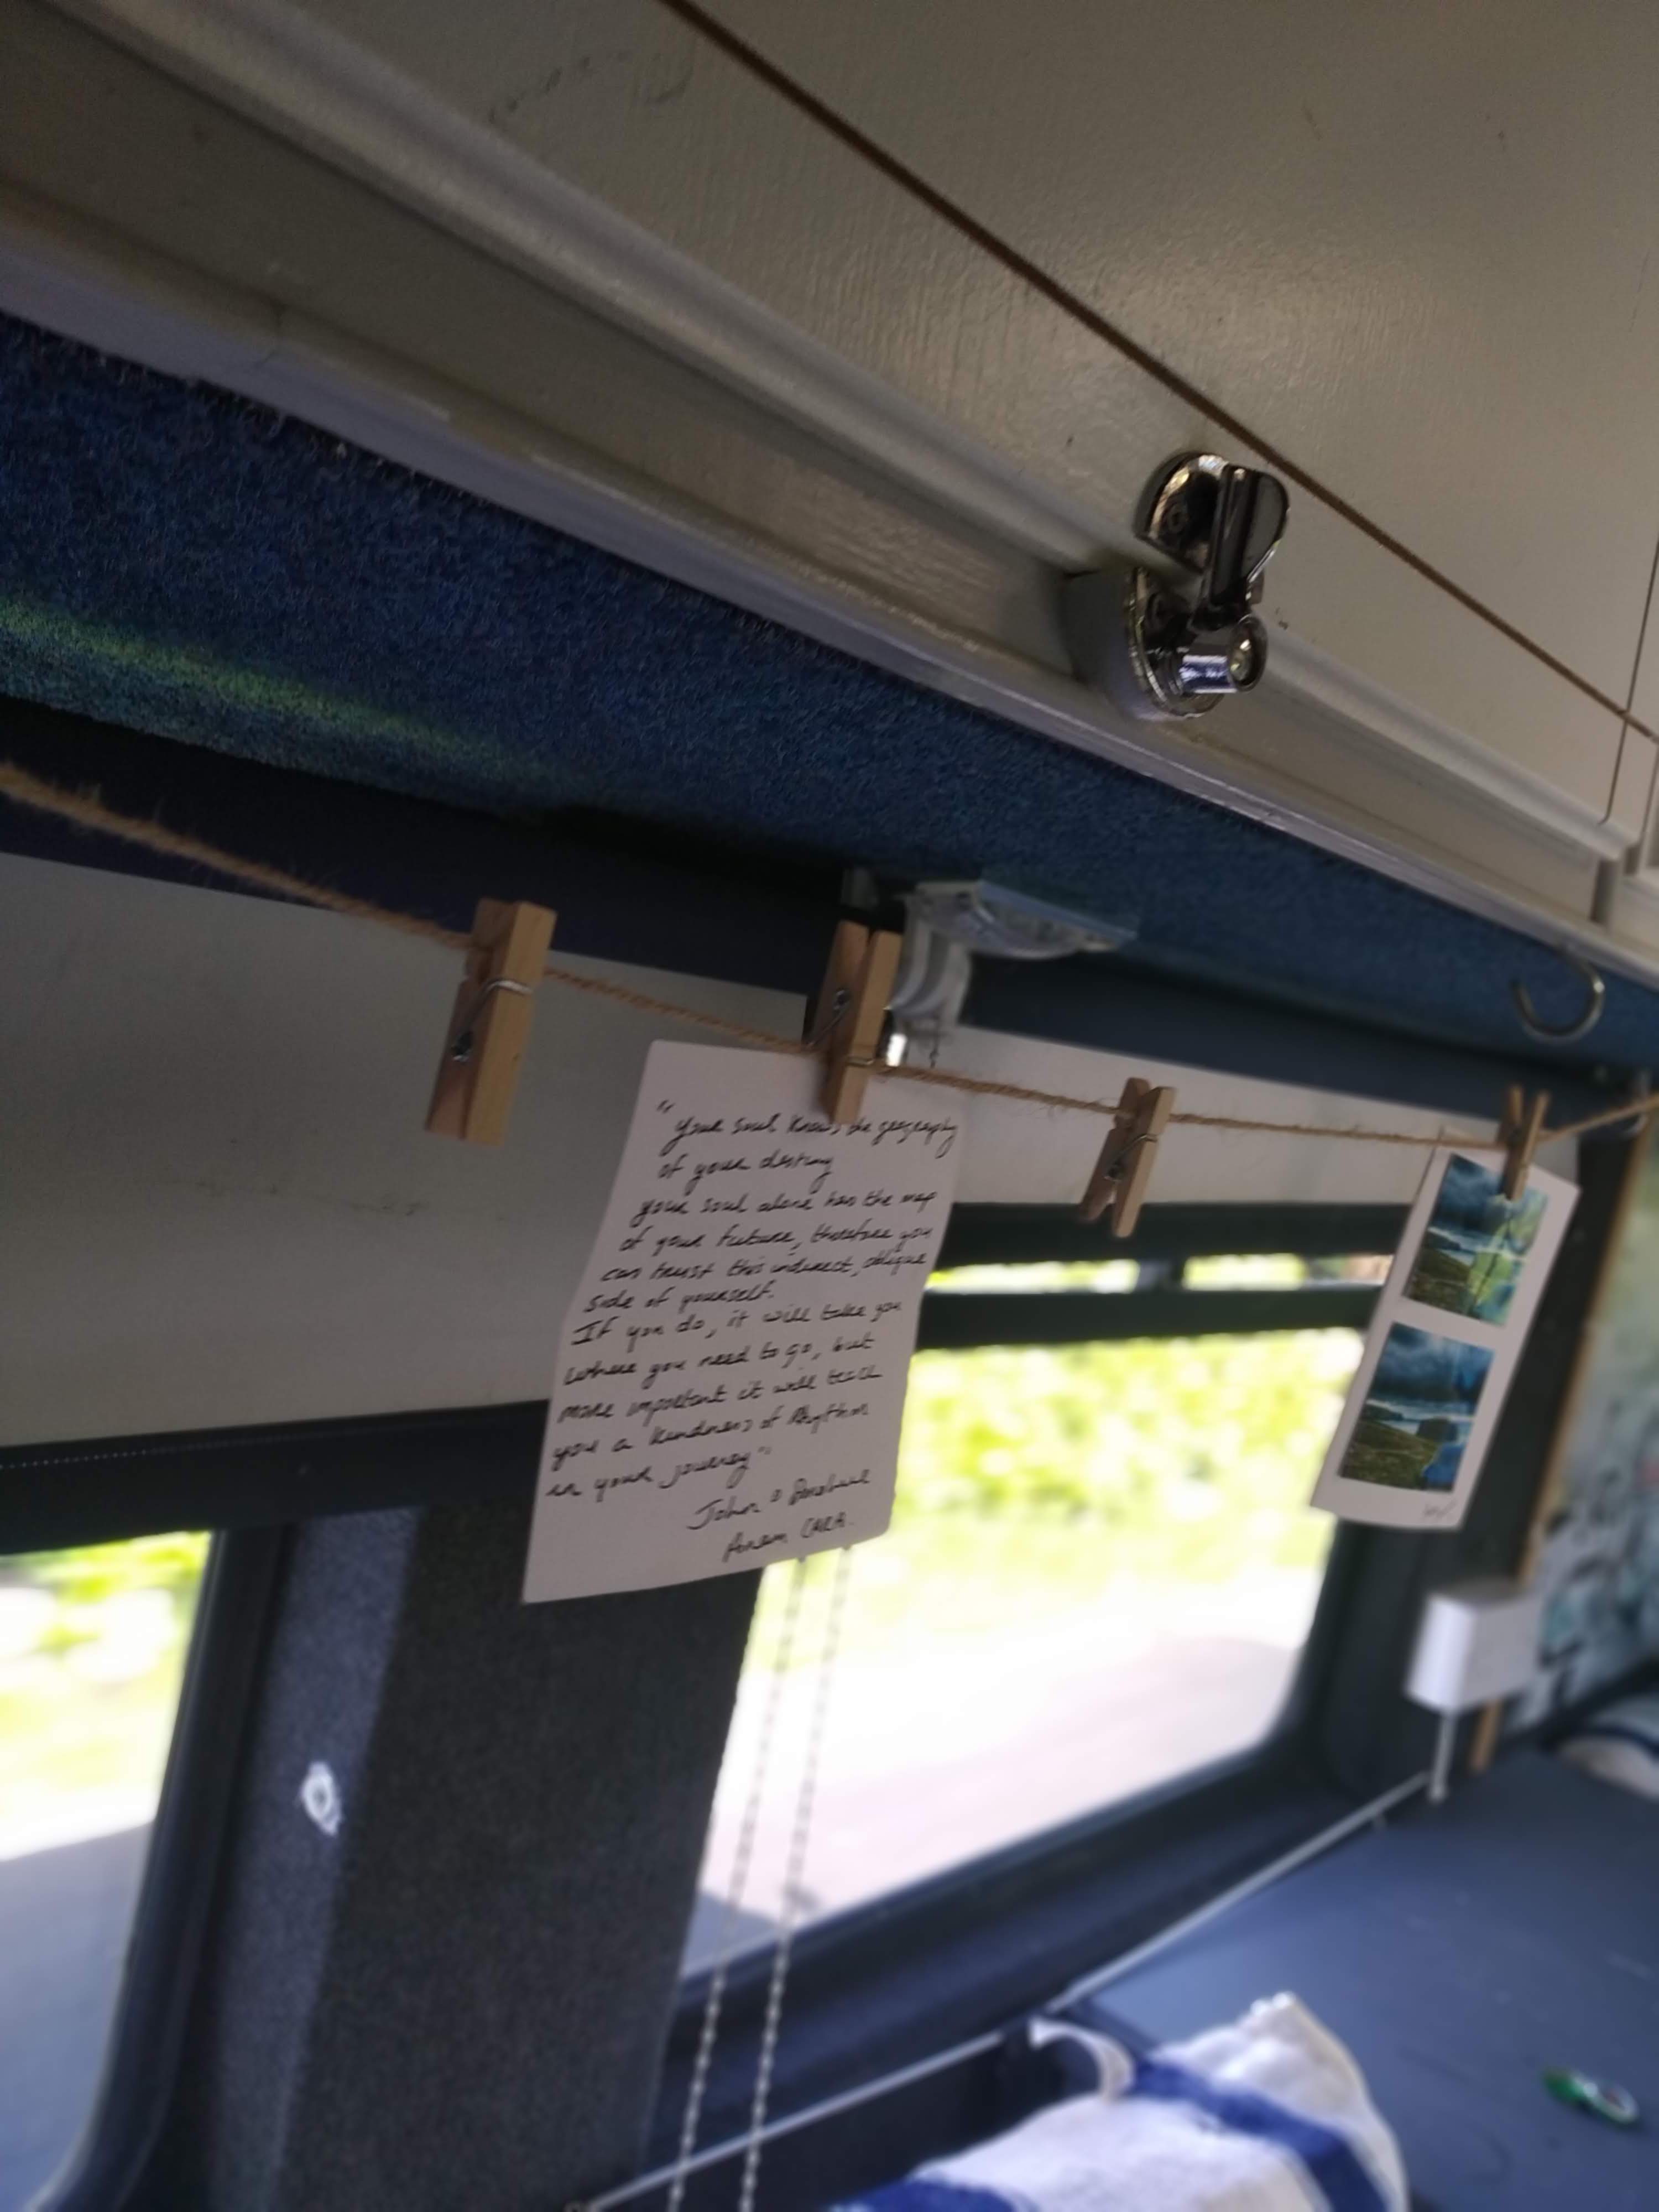 "Your soul knows the geography
of your destiny
your soul alone has the map
of your future, therefore you
can trust this indirect, oblique
side of yourself.
If you do, it will take you
where you need to go, but
more important it will teach
you a kindness of Rhythm
in your journey"
John O Donohue
Anam CARA.